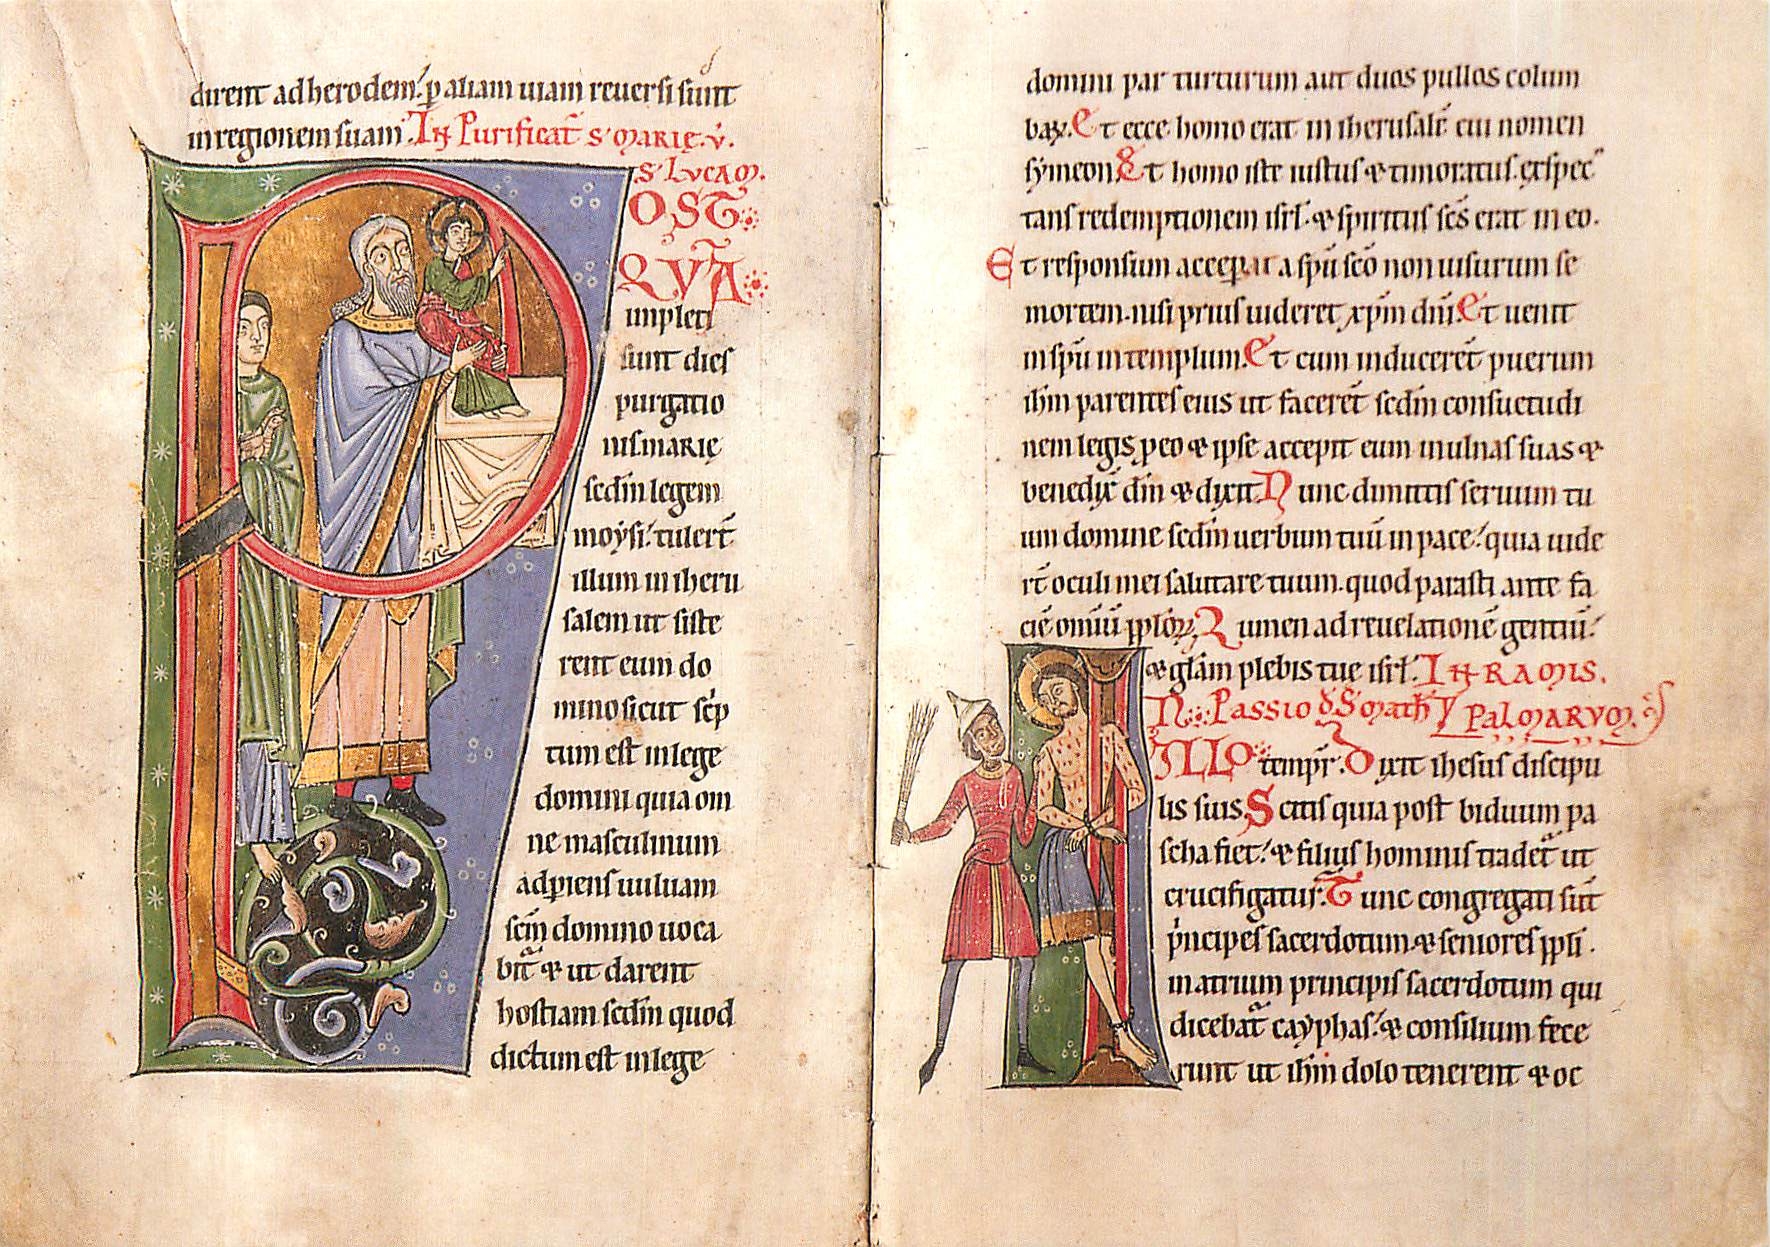 dirent ad herodem. ꝑ aliam uiam reuersi sunt
in regionem suam. In Purificat̄ s. marie. v.
.S. Lvcam.
POST
QVĀ
impleti
sunt dies
purgatio
nis marie
scdm̄ legem
moysi. tulert̄
illum in iheru
salem ut siste
rent eum do
mino sicut sc̄p
tum est in lege
domini quia om
ne masculinum
adꝑiens uuluam
sc̄m domino uoca
bit̄ & ut darent
hostiam scdm̄ quod
dictum est in lege
domini par turturum aut duos pullos colum
baꝝ. Et ecce homo erat in iherusalē cui nomen
symeon. Et homo iste iustus & timoratus. exspec
tans redemptionem isrl̄. & spiritus sc̄s erat in eo.
Et responsum acceperat a spū scō non uisurum se
mortem. nisi prius uideret xp̄m dnī. Et uenit
in spū in templum. Et cum inducerēt puerum
ihm̄ parentes eius ut facerēt scdm̄ consuetudi
nem legis ꝓ eo & ipse accepit eum in ulnas suas &
benedix̄ dm̄ & dixit. Nunc dimittis seruum tu
um domine scdm̄ uerbum tuū in pace. quia uide
rt̄ oculi mei salutare tuum. quod parasti ante fa
ciē omiū ꝓploꝝ. Lumen ad reuelationē gentiū.
& glām plebis tue isrl̄. In Ramis
Palmarvm.
N. Passio d. S. math̄
ILLO tempr̄. Dixit ihesus discipu
lis suis. Scitis quia post biduum pa
scha fiet. & filius hominis tradet̄ ut
crucifigatur. Tunc congregati sūt
p̄ncipes sacerdotum & seniores ppl̄i.
in atrium principis sacerdotum qui
dicebat̄ cayphas. & consilium fece
runt ut ihm̄ dolo tenerent & oc